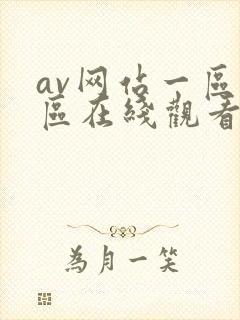 av网佔一區
區在綫觀看
為月一笑